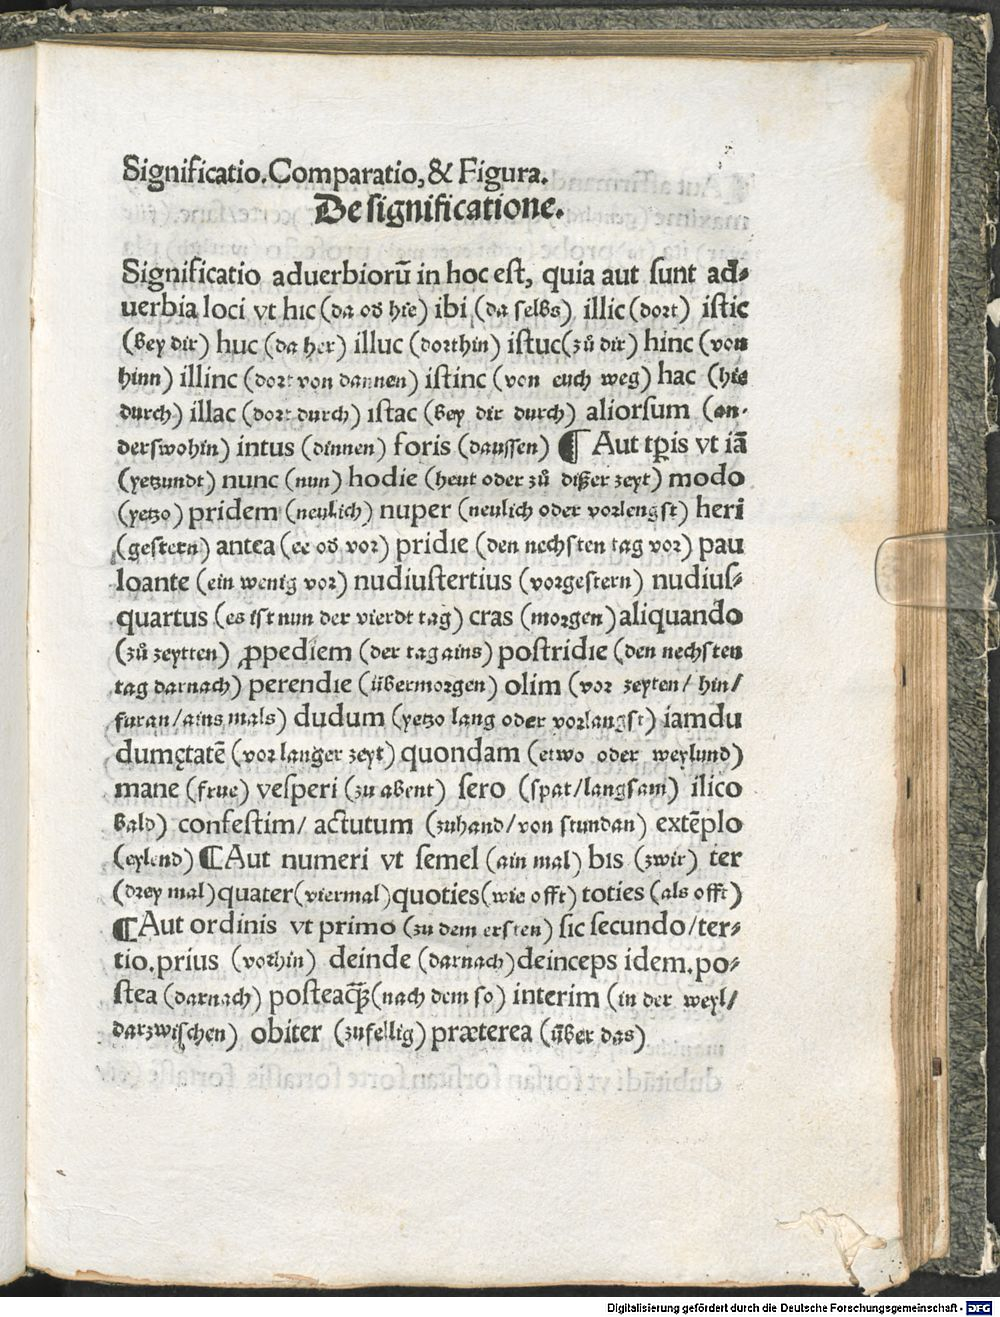 Significatio.Comparatio,& Figura.
De significatione.
Significatio aduerbiorū in hoc est, quia aut sunt ad⸗
uerbia loci vt hic (da oď hie) ibi (da selbs) illic (dort) istic
(bey dir) huc (da her) illuc (dorthin) istuc(zů dir) hinc (von
hinn) illinc (dort von dannen) istinc (von euch weg) hac (hie
durch) illac (dort durch) istac (bey dir durch) aliorsum (an⸗
derswohin) intus (dinnen) foris (daussen) ¶ Aut tꝑis vt iā
(yetzundt) nunc (nun) hodie (heut oder zů dißer zeyt) modo
(yetzo) pridem (neulich) nuper (neulich oder vorlengst) heri
(gestern) antea (ee oď vor) pridie (den nechsten tag vor) pau
loante (ein wenig vor) nudiustertius (vorgestern) nudius⸗
quartus (es ist nun der vierdt tag) cras (morgen) aliquando
(zů zeytten) ꝓppediem (der tag ains) postridie (den nechsten
tag darnach) perendie (übermorgen) olim (vor zeyten/ hin/
furan/ains mals) dudum (yetzo lang oder vorlangst) iamdu
dumętatē (vor langer zeyt) quondam (etwo oder weylund)
mane (frue) vesperi (zu abent) sero (spat/langsam) ilico
bald) confestim/ actutum (zuhand/von stundan) extēplo
(eylend) ¶Aut numeri vt semel (ain mal) bis (zwir) ter
(drey mal)quater(viermal)quoties(wie offt) toties (als offt)
¶Aut ordinis vt primo (zu dem ersten) sic secundo/ter⸗
tio.prius (vorhin) deinde (darnach)deinceps idem.po⸗
stea (darnach) posteaꝙ̃(nach dem so) interim (in der weyl/
darzwischen) obiter (zufellig) præterea (über das)
Digitalisierung gefördert durch die Deutsche Forschungsgemeinschaft - DFG